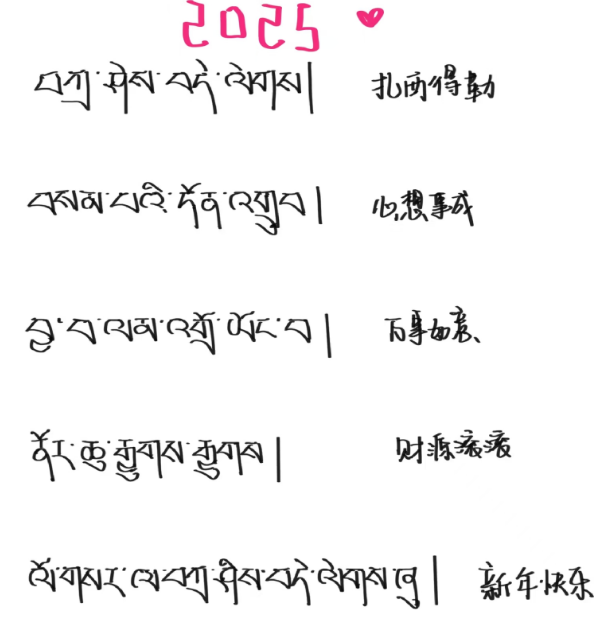 2025
བཀྲ་ཤིས་བདེ་ལེགས། 扎西得勒
བསམ་པའི་དོན་འགྲུབ། 心想事成
བྱ་བ་ལམ་འགྲོ་ཡོང་བ། 百事如意、
ནོར་ཆུ་རྒྱུགས་རྒྱུགས། 财源滚滚
ལོ་གསར་ལ་བཀྲ་ཤིས་བདེ་ལེགས་ཞུ། 新年快乐